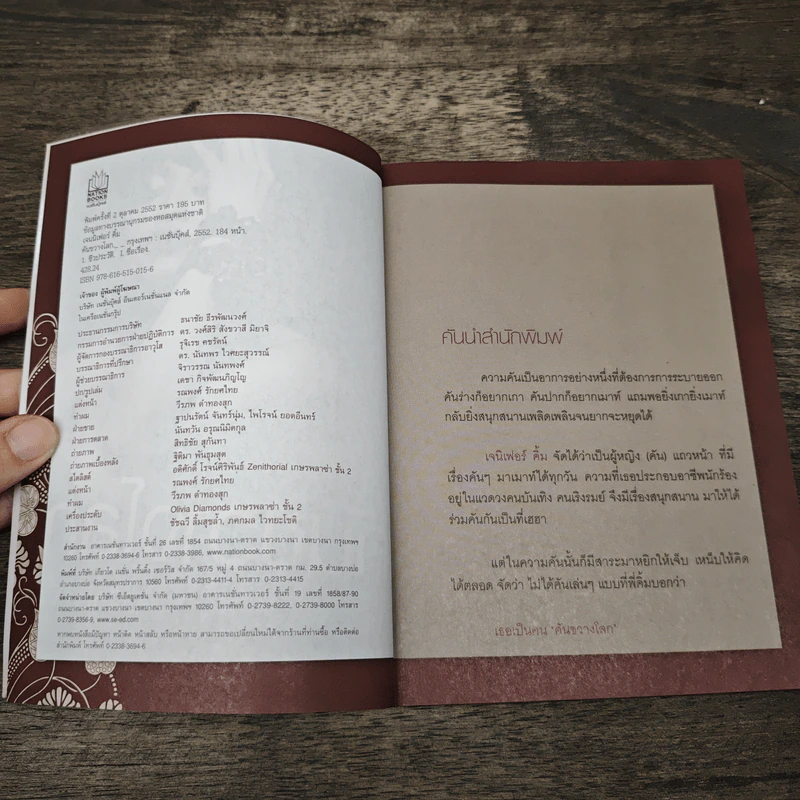 NATION
BOOKS
พิมพ์ครั้งที่ 2 ตุลาคม 2552 ราคา 195 บาท
ข้อมูลทางบรรณานุกรมของหอสมุดแห่งชาติ
เจนนิเฟอร์ คิ้ม
คันขวางโลก.-- กรุงเทพฯ : เนชั่นบุ๊คส์, 2552. 184 หน้า.
1. ชีวประวัติ. I. ชื่อเรื่อง.
428.24
ISBN 978-616-515-015-6
เจ้าของ ผู้พิมพ์ผู้โฆษณา
บริษัท เนชั่นบุ๊คส์ อินเตอร์เนชั่นแนล จำกัด
ในเครือเนชั่นกรุ๊ป
ประธานกรรมการบริษัท ธนาชัย ธีรพัฒนวงศ์
กรรมการอำนวยการฝ่ายปฏิบัติการ ดร. วงศ์สิริ สังขวาสี มิยาจิ
ผู้จัดการกองบรรณาธิการอาวุโส รุจิเรข คชรัตน์
บรรณาธิการที่ปรึกษา ดร. นันทพร ไวศยะสุวรรณ์
ผู้ช่วยบรรณาธิการ จิราวรรณ นันทพงศ์
ปกรูปเล่ม เดชา กิจพัฒนภิญโญ
แต่งหน้า รณพงศ์ รักยศไทย
ทำผม วีรภพ ดำทองสุก
ฝ่ายขาย ฐาปนรัตน์ จันทร์นุ่ม, ไพโรจน์ ยอดอินทร์
ฝ่ายการตลาด นันทวัน อรุณนิมิตกุล
ถ่ายภาพ สิทธิชัย สุกันทา
ถ่ายภาพเบื้องหลัง ฐิติมา พันธุมสุต
สไตลิสต์ อติศักดิ์ โรจน์ศิริพันธ์ Zenithorial เกษรพลาซ่า ชั้น 2
แต่งหน้า รณพงศ์ รักยศไทย
ทำผม วีรภพ ดำทองสุก
เครื่องประดับ Olivia Diamonds เกษรพลาซ่า ชั้น 2
ประสานงาน ชัชฉวี ลิ้มสุขล้ำ, ภคกมล ไวทยะโชติ
สำนักงาน อาคารเนชั่นทาวเวอร์ ชั้นที่ 26 เลขที่ 1854 ถนนบางนา-ตราด แขวงบางนา เขตบางนา กรุงเทพฯ
10260 โทรศัพท์ 0-2338-3694-6 โทรสาร 0-2338-3986, www.nationbook.com
พิมพ์ที่ บริษัท เกียวโด เนชั่น พริ้นติ้ง เซอร์วิส จำกัด 167/5 หมู่ 4 ถนนบางนา-ตราด กม. 29.5 ตำบลบางบ่อ
อำเภอบางบ่อ จังหวัดสมุทรปราการ 10560 โทรศัพท์ 0-2313-4411-4 โทรสาร 0-2313-4415
จัดจำหน่ายโดย บริษัท ซีเอ็ดยูเคชั่น จำกัด (มหาชน) อาคารเนชั่นทาวเวอร์ ชั้นที่ 19 เลขที่ 1858/87-90
ถนนบางนา-ตราด แขวงบางนา เขตบางนา กรุงเทพฯ 10260 โทรศัพท์ 0-2739-8222, 0-2739-8000 โทรสาร
0-2739-8356-9, www.se-ed.com
หากพบหนังสือมีปัญหา หน้าติด หน้าสลับ หรือหน้าหาย สามารถขอเปลี่ยนใหม่ได้จากร้านที่ท่านซื้อ หรือติดต่อ
สำนักพิมพ์ โทรศัพท์ 0-2338-3694-6
คันนำสำนักพิมพ์
ความคันเป็นอาการอย่างหนึ่งที่ต้องการการระบายออก
คันร่างก็อยากเกา คันปากก็อยากเมาท์ แถมพอยิ่งเกายิ่งเมาท์
กลับยิ่งสนุกสนานเพลิดเพลินจนยากจะหยุดได้
เจนิเฟอร์ คิ้ม จัดได้ว่าเป็นผู้หญิง (คัน) แถวหน้า ที่มี
เรื่องคันๆ มาเมาท์ได้ทุกวัน ความที่เธอประกอบอาชีพนักร้อง
อยู่ในแวดวงคนบันเทิง คนเริงรมย์ จึงมีเรื่องสนุกสนาน มาให้ได้
ร่วมคันกันเป็นที่เฮฮา
แต่ในความคันนั้นก็มีสาระมาหยิกให้เจ็บ เหน็บให้คิด
ได้ตลอด จัดว่า ไม่ได้คันเล่นๆ แบบที่พี่คิ้มบอกว่า
เธอเป็นคน ‘คันขวางโลก’